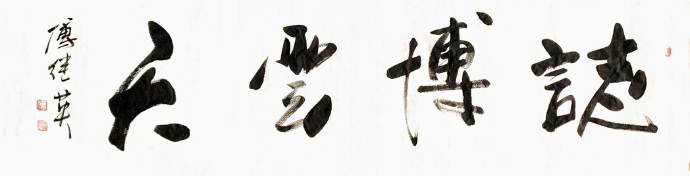 誌博雲天
傅继英